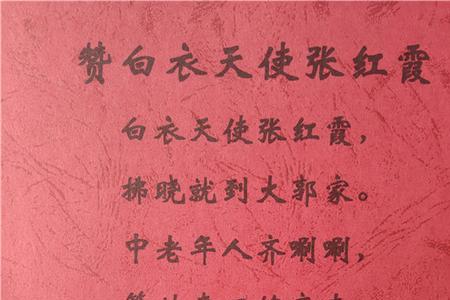 赞白衣天使张红霞
白衣天使张红霞，
拂晓就到大郭家。
中老年人齐唰唰，